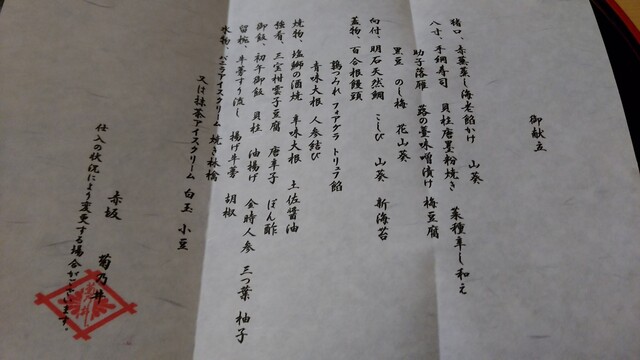 御献立
猪口、赤蕪蒸し海老餡かけ 山葵
八寸、手綱寿司 貝柱唐墨粉焼き 菜種辛し和え
助子落雁 蕗の薹味噌漬け 梅豆腐
黒豆 のし梅 花山葵
向付、明石天然鯛 こしび 山葵 新海苔
蓋物、百合根饅頭
鶉つみれ フォアグラ トリュフ餡
青味大根 人参結び
焼物、塩鰤の酒焼 辛味大根 土佐醤油
強肴、三宝柑雲子豆腐 唐辛子 ぽん酢
御飯、初午御飯 貝柱 油揚げ 金時人参 三つ葉 柚子
留椀、牛蒡すり流し 揚げ牛蒡 胡椒
水物、バニラアイスクリーム 焼き林檎
又は抹茶アイスクリーム 白玉 小豆
赤坂 菊乃井
仕入の状況により変更する場合がございます。